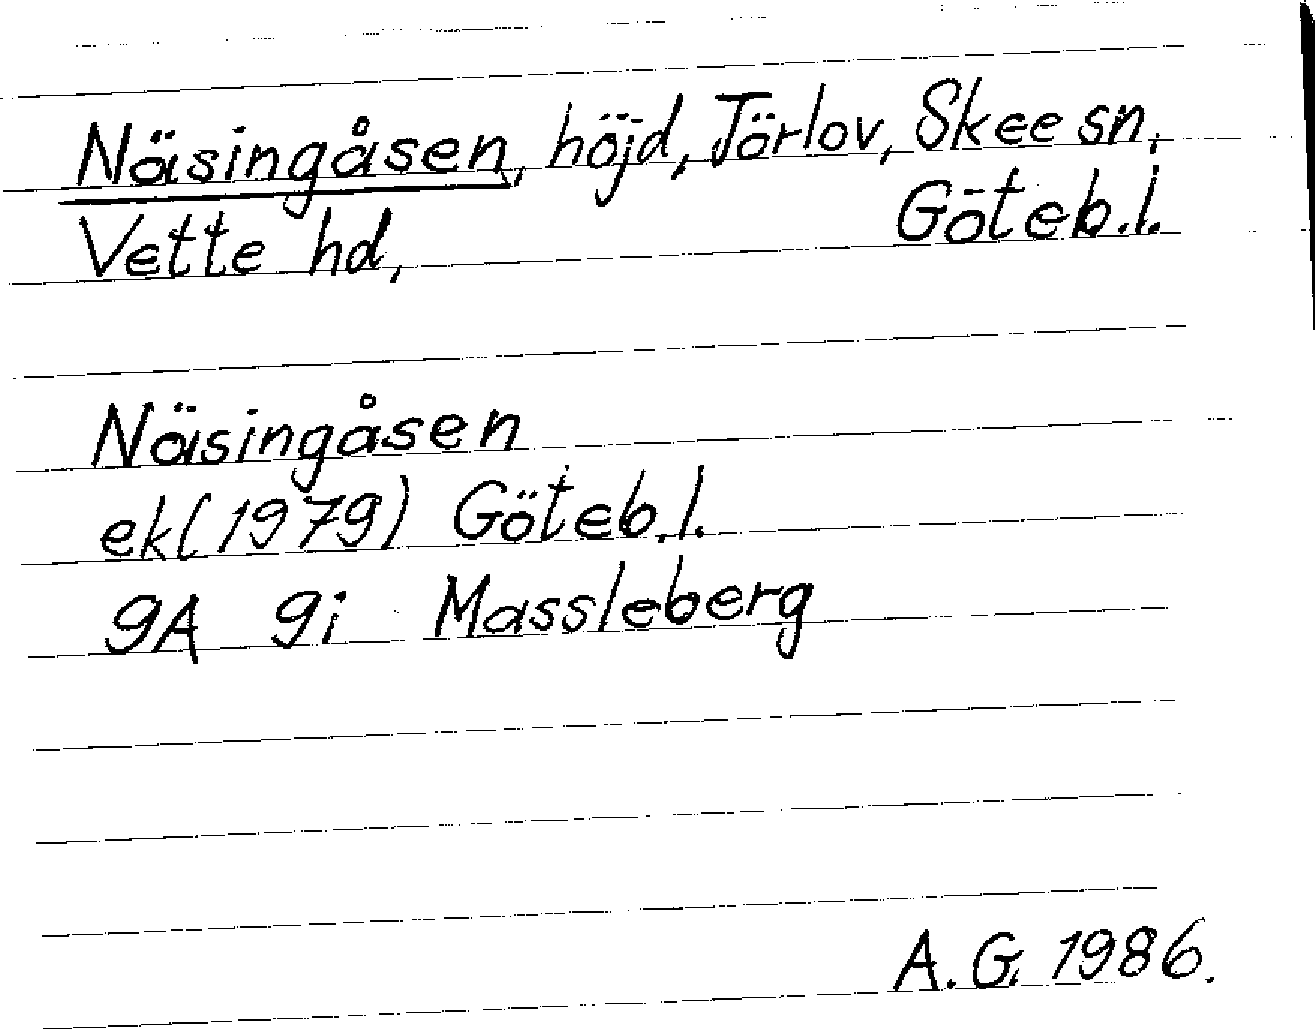 Näsingåsen, höjd, Jörlov, Skee sn,
Vette hd, Göteb.l.
Näsingåsen
ek(1979) Göteb.l.
9A 9i Massleberg
A.G. 1986.